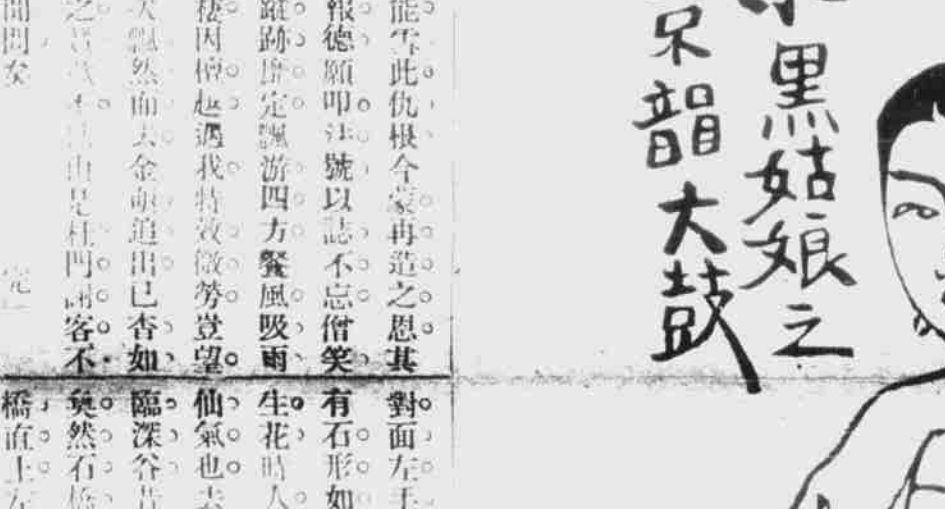 黑姑娘之
韻大鼓
能雪此仇根今蒙再造之恩其
報德願叩法號以誌不忘僧笑
跡靡定飄游四方餐風吸雨
棲因檀越遇我特效微勞豈望
飄然而去金追出已杳如
之由是杜門謝客不
聞問矣完
對面左手
有石形如
生花時人
仙氣也去
臨深谷
然石橋
橋直上左